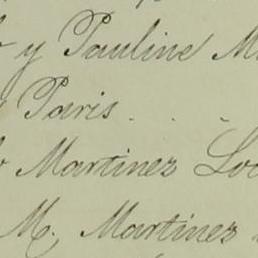 y Pauline M
Paris . . .
Martinez Lo
M. Martinez